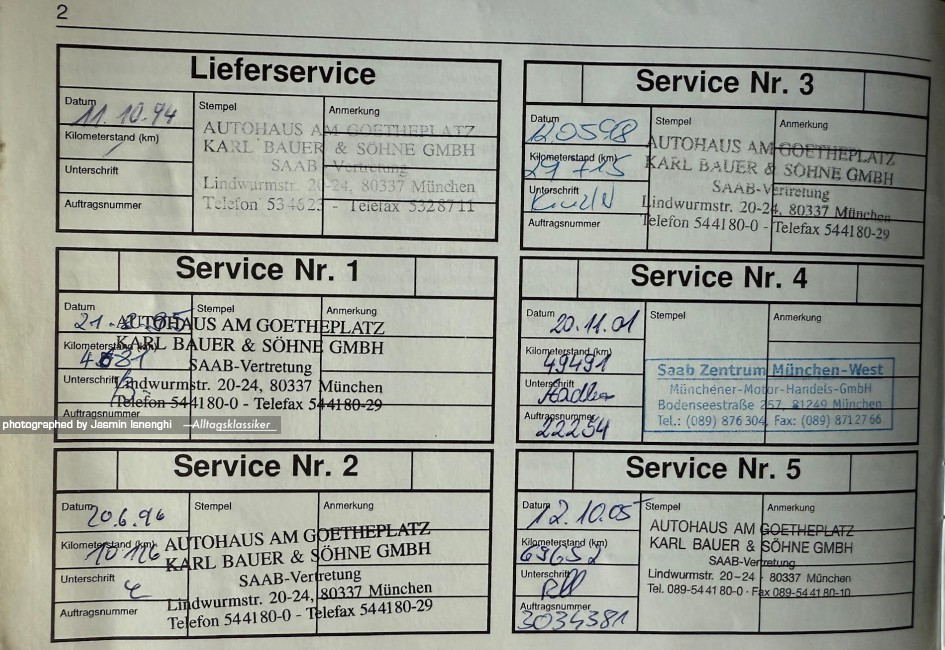 2
Lieferservice
Datum
11.10.94
Stempel
Anmerkung
Kilometerstand (km)
Unterschrift
Auftragsnummer
AUTOHAUS AM GOETHEPLATZ
KARL BAUER & SÖHNE GMBH
SAAB-Vertretung
Lindwurmstr. 20-24, 80337 München
Telefon 534623 - Telefax 5328711
Service Nr. 1
Datum
Stempel
Anmerkung
Kilometerstand (km)
Unterschrift
Auftragsnummer
AUTOHAUS AM GOETHEPLATZ
KARL BAUER & SÖHNE GMBH
SAAB-Vertretung
Lindwurmstr. 20-24, 80337 München
Telefon 544180-0 - Telefax 544180-29
photographed by Jasmin Isnenghi —Alltagsklassiker
Service Nr. 2
Datum
20.6.96
Stempel
Anmerkung
Kilometerstand (km)
Unterschrift
Auftragsnummer
AUTOHAUS AM GOETHEPLATZ
KARL BAUER & SÖHNE GMBH
SAAB-Vertretung
Lindwurmstr. 20-24, 80337 München
Telefon 544180-0 - Telefax 544180-29
Service Nr. 3
Datum
Stempel
Anmerkung
Kilometerstand (km)
29715
Unterschrift
Auftragsnummer
AUTOHAUS AM GOETHEPLATZ
KARL BAUER & SÖHNE GMBH
SAAB-Vertretung
Lindwurmstr. 20-24, 80337 München
Telefon 544180-0 - Telefax 544180-29
Service Nr. 4
Datum
20.11.01
Stempel
Anmerkung
Kilometerstand (km)
49491
Unterschrift
Auftragsnummer
22254
Saab Zentrum München-West
Münchener-Motor-Handels-GmbH
Bodenseestraße 257, 81249 München
Tel.: (089) 876304, Fax: (089) 8712766
Service Nr. 5
Datum
12.10.05
Stempel
Anmerkung
Kilometerstand (km)
69652
Unterschrift
Auftragsnummer
3034381
AUTOHAUS AM GOETHEPLATZ
KARL BAUER & SÖHNE GMBH
SAAB-Vertretung
Lindwurmstr. 20–24 · 80337 München
Tel. 089-54 41 80-0 · Fax 089-54 41 80-10